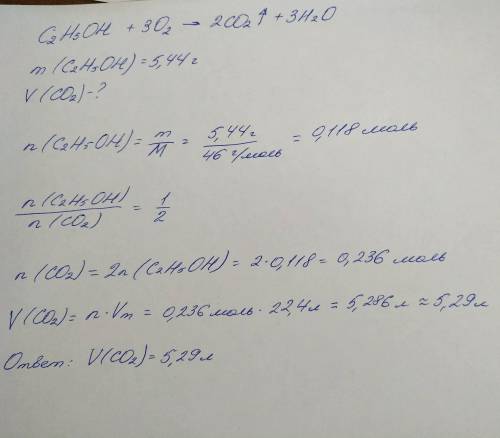 C₂H₅OH + 3O₂ → 2CO₂↑ + 3H₂O
m (C₂H₅OH) = 5,44 г
V (CO₂) - ?
n (C₂H₅OH) = m/M = 5,44 г / 46 г/моль = 0,118 моль
n (C₂H₅OH) / n (CO₂) = 1/2
n (CO₂) = 2n (C₂H₅OH) = 2·0,118 = 0,236 моль
V (CO₂) = n·Vm = 0,236 моль · 22,4 л = 5,286 л ≈ 5,29 л
Ответ: V(CO₂) = 5,29 л